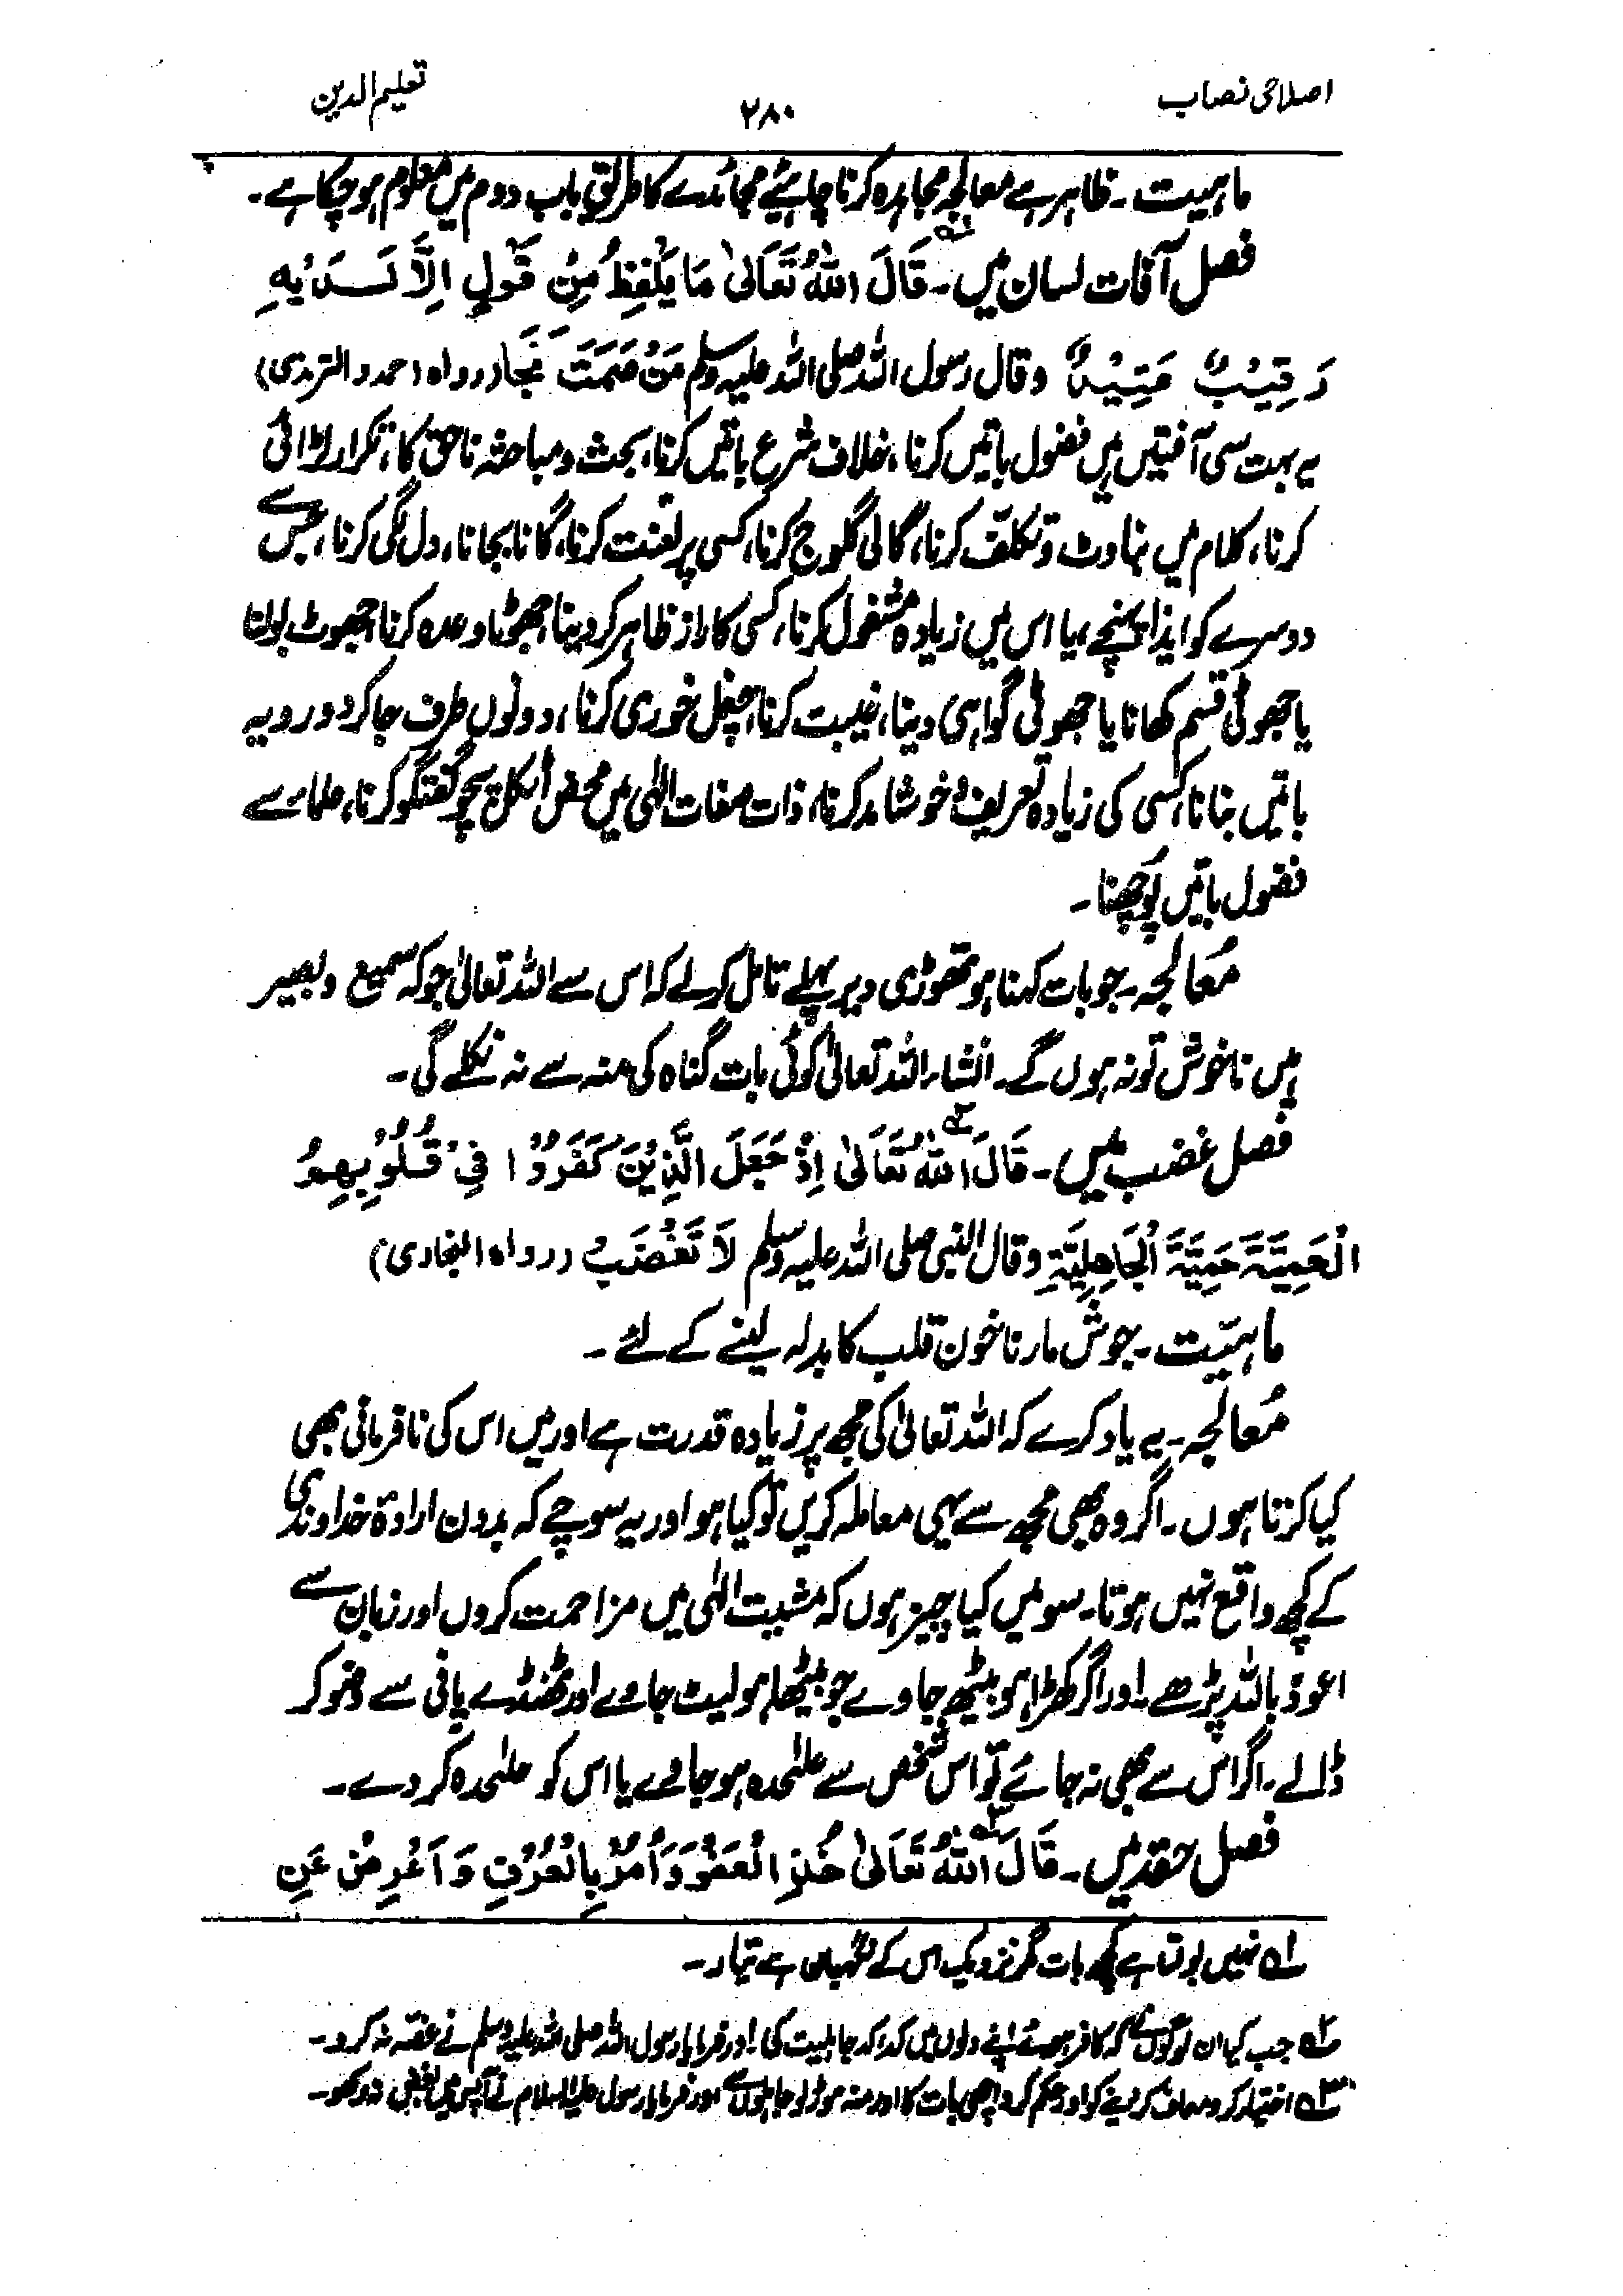 اصلاحی نصاب
۲۸۰
تعلیم الدین
ماہیت۔ ظاہر ہے معالجہ مجاہدہ کرنا چاہئیے مجاہدے کا طریق باب دوم میں معلوم ہو چکا ہے۔
فصل آفات لسان میں۔ قَالَ اللهُ تَعَالىٰ مَا يَلْفِظُ مِنْ قَوْلٍ اِلَّا لَـدَيْهِ
رَقِيْبٌ عَتِيْدٌ وقال رسول اللہ صلی اللہ علیہ وسلم مَنْ صَمَتَ نَجَا (رواہ احمد والترمذی)
یہ بہت سی آفتیں ہیں فضول باتیں کرنا، خلاف شرع باتیں کرنا، بحث و مباحثہ ناحق کا، تکرار لڑائی
کرنا، کلام میں بناوٹ و تکلّف کرنا، گالی گلوج کرنا، کسی پر لعنت کرنا، گانا بجانا، دل لگی کرنا، جس سے
دوسرے کو ایذا پہنچے، یا اس میں زیادہ مشغول کرنا، کسی کا راز ظاہر کر دینا، جھوٹا وعدہ کرنا، جھوٹ بولنا
یا جھوٹی قسم کھانا یا جھوٹی گواہی دینا، غیبت کرنا، چغل خوری کرنا، دونوں طرف جا کر دو رویہ
باتیں بنانا، کسی کی زیادہ تعریف و خوشامد کرنا، ذات صفات الٰہی میں محض اٹکل پچو گفتگو کرنا، علماء سے
فضول باتیں پوچھنا۔
مُعالجہ۔ جو بات کہنا ہو تھوڑی دیر پہلے تامل کر لے کہ اس سے اللہ تعالیٰ جو کہ سمیع و بصیر
ہیں ناخوش تو نہ ہوں گے۔ انشاء اللہ تعالیٰ کوئی بات گناہ کی منہ سے نہ نکلے گی۔
فصل غضب میں۔ قَالَ اللهُ تَعَالىٰ اِذْ جَعَلَ الَّذِيْنَ كَفَرُوْا فِيْ قُلُوْبِهِمُ
الْحَمِيَّةَ حَمِيَّةَ الْجَاهِلِيَّةِ وقال النبی صلی اللہ علیہ وسلم لَا تَغْضَبْ (رواہ البخاری)
ماہیّت۔ جوش مارنا خون قلب کا بدلہ لینے کے لئے۔
مُعالجہ۔ یہ یاد کرے کہ اللہ تعالیٰ کی مجھ پر زیادہ قدرت ہے اور میں اس کی نافرمانی بھی
کیا کرتا ہوں۔ اگر وہ بھی مجھ سے یہی معاملہ کریں تو کیا ہو اور یہ سوچے کہ بدون ارادۂ خداوندی
کے کچھ واقع نہیں ہوتا۔ سو میں کیا چیز ہوں کہ مشیت الٰہی میں مزاحمت کروں اور زبان سے
اعوذ باللہ پڑھے۔ اور اگر کھڑا ہو بیٹھ جاوے جو بیٹھا ہو لیٹ جاوے اور ٹھنڈے پانی سے وضو کر
ڈالے۔ اگر اس سے بھی نہ جائے تو اس شخص سے علٰحدہ ہو جاوے یا اس کو علٰحدہ کر دے۔
فصل حقد میں۔ قَالَ اللهُ تَعَالىٰ خُذِ الْعَفْوَ وَأْمُرْ بِالْعُرْفِ وَاَعْرِضْ عَنِ
لہ۱ نہیں بولتا ہے کچھ بات مگر نزدیک اس کے نگہبان ہے تیار۔
لہ۲ جب کیا ان لوگوں نے کہ کافر ہوئے اپنے دلوں میں کد کد جاہلیت کی اور فرمایا رسول اللہ صلی اللہ علیہ وسلم نے غصّہ نہ کرو۔
لہ۳ اختیار کرو معاف کر دینے کو اور حکم کرو اچھی بات کا اور منہ موڑ لو جاہلوں سے اور فرمایا رسول علیہ السلام نے آپس میں بغض نہ رکھو۔